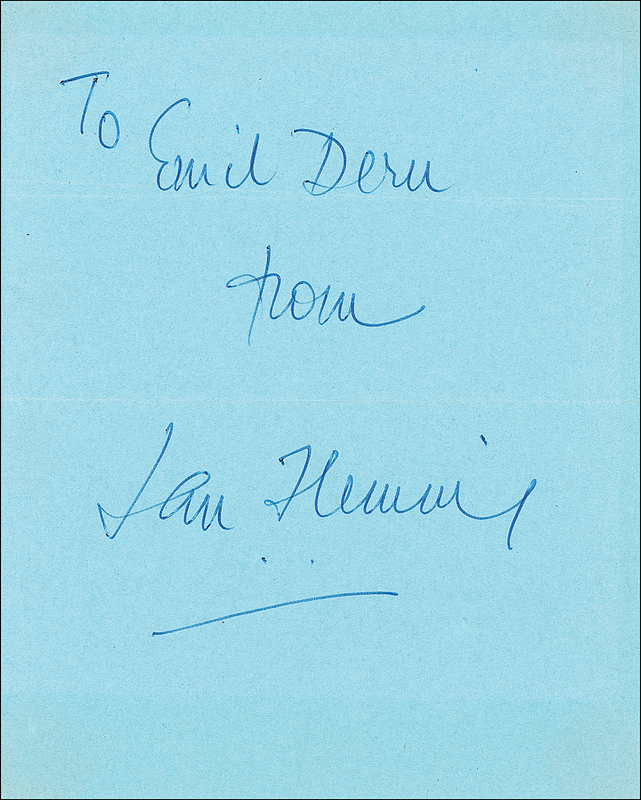 To Emil Dern
from
Ian Fleming